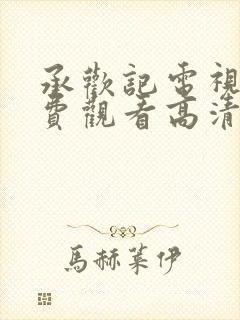 承歡記電視
費觀看高清
馬赫萊伊